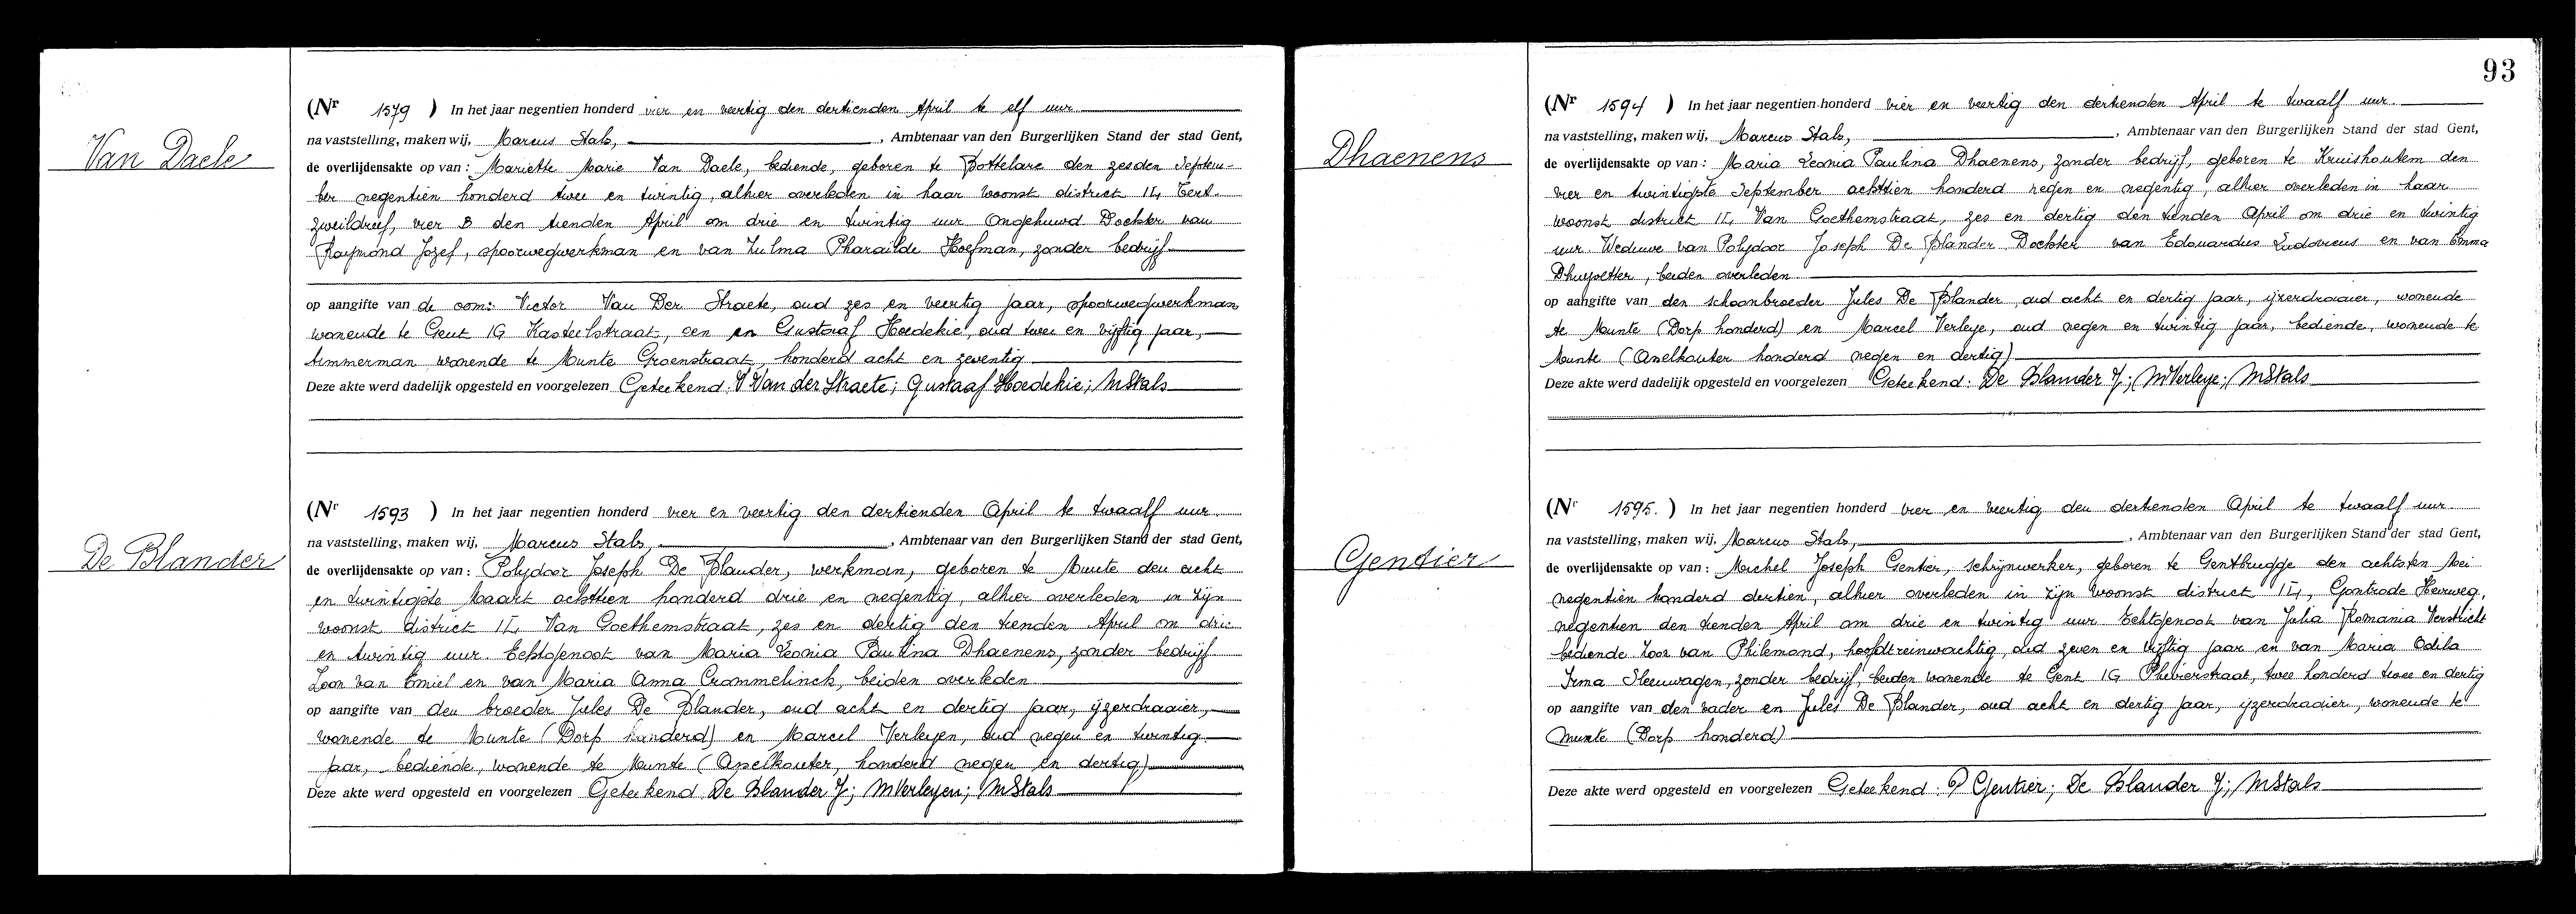 Van Daele
(Nr 1579 ) In het jaar negentien honderd vier en veertig den dertienden April te elf uur
na vaststelling, maken wij, Marcus Stals, , Ambtenaar van den Burgerlijken Stand der stad Gent,
de overlijdensakte op van : Mariette Marie Van Daele, bediende, geboren te Bottelare den zesden Septem-
ber negentien honderd twee en twintig, alhier overleden in haar woonst district II,
vier B den tienden April om drie en twintig uur Ongehuwd Dochter van
Raymond Jozef, spoorwegwerkman en van Zulma Pharailde Hoefman, zonder bedrijf
op aangifte van de oom: Victor Van Der Straete, oud zes en veertig jaar, spoorwegwerkman
wonende te Gent IG Kasteelstraat, een en Gustaaf Hoedekie, oud twee en vijftig jaar,
timmerman wonende te Munte Groenstraat, honderd acht en zeventig
Deze akte werd dadelijk opgesteld en voorgelezen Geteekend: V Van der Straete; Gustaaf Hoedekie; MStals
De Blander
(Nr 1593 ) In het jaar negentien honderd vier en veertig den dertienden April te twaalf uur
na vaststelling, maken wij, Marcus Stals, , Ambtenaar van den Burgerlijken Stand der stad Gent,
de overlijdensakte op van : Polydoor Joseph De Blander, werkman, geboren te Munte den acht
en twintigste Maart achttien honderd drie en negentig, alhier overleden in zijn
woonst district II, Van Goethemstraat, zes en dertig den tienden April om drie
en twintig uur. Echtgenoot van Maria Leonia Paulina Dhaenens, zonder bedrijf
Zoon van Emiel en van Maria Anna Crommelinck, beiden overleden
op aangifte van den broeder Jules De Blander, oud acht en dertig jaar, ijzerdraaier,
wonende de Munte (Dorp honderd) en Marcel Verleyen, oud negen en twintig
jaar, bediende, wonende te Munte (Anelkouter, honderd negen en dertig)
Deze akte werd opgesteld en voorgelezen Geteekend De Blander J; MVerleyen; MStals
93
Dhaenens
(Nr 1594 ) In het jaar negentien honderd vier en veertig den dertienden April te twaalf uur.
na vaststelling, maken wij, Marcus Stals, , Ambtenaar van den Burgerlijken Stand der stad Gent,
de overlijdensakte op van : Maria Leonia Paulina Dhaenens, zonder bedrijf, geboren te Kruishoutem den
vier en twintigste September achttien honderd negen en negentig, alhier overleden in haar
woonst district II, Van Goethemstraat, zes en dertig den tienden April om drie en twintig
uur. Weduwe van Polydoor Joseph De Blander Dochter van Edouardus Ludovicus en van Emma
Dhuyvetter, beiden overleden
op aangifte van den schoonbroeder Jules De Blander, oud acht en dertig jaar, ijzerdraaier, wonende
te Munte (Dorp honderd) en Marcel Verleye, oud negen en twintig jaar, bediende, wonende te
Munte (Anelkouter honderd negen en dertig)
Deze akte werd dadelijk opgesteld en voorgelezen Geteekend: De Blander J; MVerleye; MStals
Gentier
(Nr 1595. ) In het jaar negentien honderd vier en veertig den dertienden April te twaalf uur
na vaststelling, maken wij, Marcus Stals, , Ambtenaar van den Burgerlijken Stand der stad Gent,
de overlijdensakte op van : Michel Joseph Gentier, schrijnwerker, geboren te Gentbrugge den achtsten Mei
negentien honderd dertien, alhier overleden in zijn woonst district II, Gontrode Heirweg,
negentien den tienden April om drie en twintig uur Echtgenoot van Julia Romania Verstricht
bediende Zoon van Philemond, hoofdtreinwachtig, oud zeven en vijftig jaar en van Maria Odila
Irma Sleeuwagen, zonder bedrijf, beiden wonende te Gent IG Plevierstraat, twee honderd twee en dertig
op aangifte van den vader en Jules De Blander, oud acht en dertig jaar, ijzerdraaier, wonende te
Munte (Dorp honderd)
Deze akte werd opgesteld en voorgelezen Geteekend: P Gentier; De Blander J; MStals